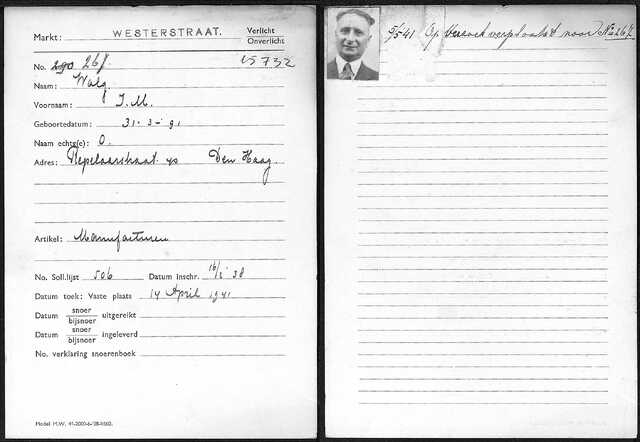 Markt: WESTERSTRAAT. Verlicht
Onverlicht
No. 290 267. 15732
Naam: Walg
Voornaam: I. M.
Geboortedatum: 31-3-91
Naam echtg(e): O.
Adres: Repelaarstraat 40 Den Haag.
Artikel: Manufacturen
No. Soll.lijst 506 Datum inschr. 16/5 '38
Datum toek: Vaste plaats 14 April 1941
Datum snoer/bijsnoer uitgereikt
Datum snoer/bijsnoer ingeleverd
No. verklaring snoerenboek
Model M.W. 41-2000-6-'38-1660.
5/5 '41 Op verzoek verplaatst naar No 267.